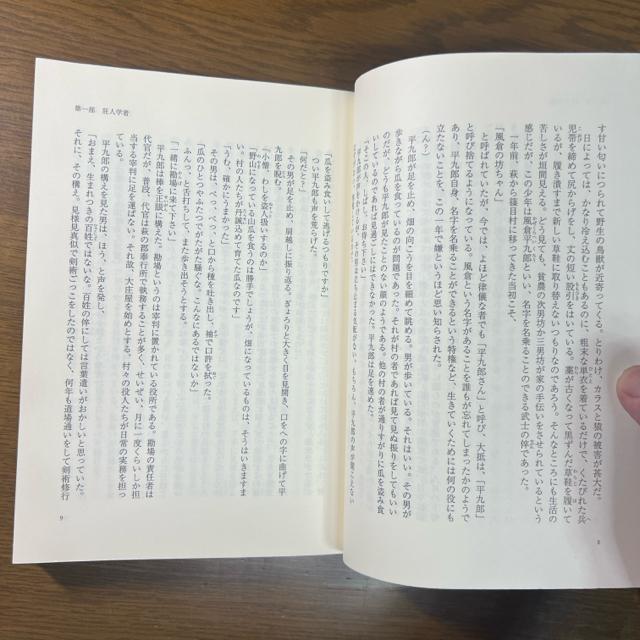 す甘い匂いにつられて野生の鳥獣が近寄ってくる。とりわけ、カラスと猿の被害が甚大だ。
日によっては、かなり冷え込むこともあるのに、粗末な単衣を着ているだけで、くたびれた兵
児帯を締めて尻からげをし、丈の短い股引をはいている。藁が古くなって黒ずんだ草鞋を履いて
いるが、履き潰すまで新しい草鞋に取り替えないつもりなのであろう。そんなところにも生活の
苦しさが垣間見える。どう見ても、貧農の次男坊か三男坊が家の手伝いをさせられているという
感じだが、この少年は風倉平九郎といい、名字を名乗ることのできる武士の倅であった。
一年前、萩から篠目村に移ってきた当初こそ、
「風倉の坊ちゃん」
と呼ばれていたが、今では、よほど律儀な者でも「平九郎さん」と呼び、大抵は、「平九郎」
と呼び捨てるようになっている。風倉という名字があることを誰もが忘れてしまったかのようで
あり、平九郎自身、名字を名乗ることができるという特権など、生きていくためには何の役にも
立たないことを、この一年で嫌というほど思い知らされた。
(ん?)
平九郎が足を止め、畑の向こうを目を細めて眺める。男が歩いている。それはいい。その男が
歩きながら瓜を食っているのが問題であった。それが村の者であれば見て見ぬ振りをしてもいい
のだが、どうも平九郎が見たことのない顔のようである。他の村の者が通りすがりに瓜を盗み食
いしているのであれば見過ごしにはできなかった。平九郎は足を速めた。
「そこの人、しばらくお待ち下さい」
第一部 狂人学者
「瓜を盗み食いして逃げるつもりですか」
つい平九郎も声を荒らげた。
「何だと?」
その男が足を止め、肩越しに振り返る。ぎょろりと大きく目を見開き、口をへの字に曲げて平
九郎を睨む。
「小僧、わしを盗人扱いするのか」
「野山になっている瓜を食うのは勝手でしょうが、畑になっているものは、そうはいきませ
い。村の人たちが丹誠込めて育てた瓜なのです」
「うむ、確かにうまかった」
その男は、ぺっ、ぺっ、と口から種を吐き出し、袖で口許を拭った。
「瓜のひとつやふたつでがたがた騒ぐな。こんなにあるではないか」
ふんっ、と舌打ちして、また歩き出そうとする。
「一緒に勘場に来て下さい」
平九郎は棒を正眼に構えた。勘場というのは宰判に置かれている役所である。勘場の責任者は
代官だが、普段、代官は萩の郡奉行所で執務することが多く、せいぜい、月に一度くらいしか担
当する宰判に足を運ばない。それ故、大庄屋を始めとする、村々の役人たちが日常の実務を担っ
ている。
平九郎の構えを見た男は、ほう、と声を発し、
「おまえ、生まれつきの百姓ではないな。百姓の倅にしては言葉遣いがおかしいと思っていた。
それに、その構え。見様見真似で剣術ごっこをしたのではなく、何年も道場通いをして剣術修行
8
9